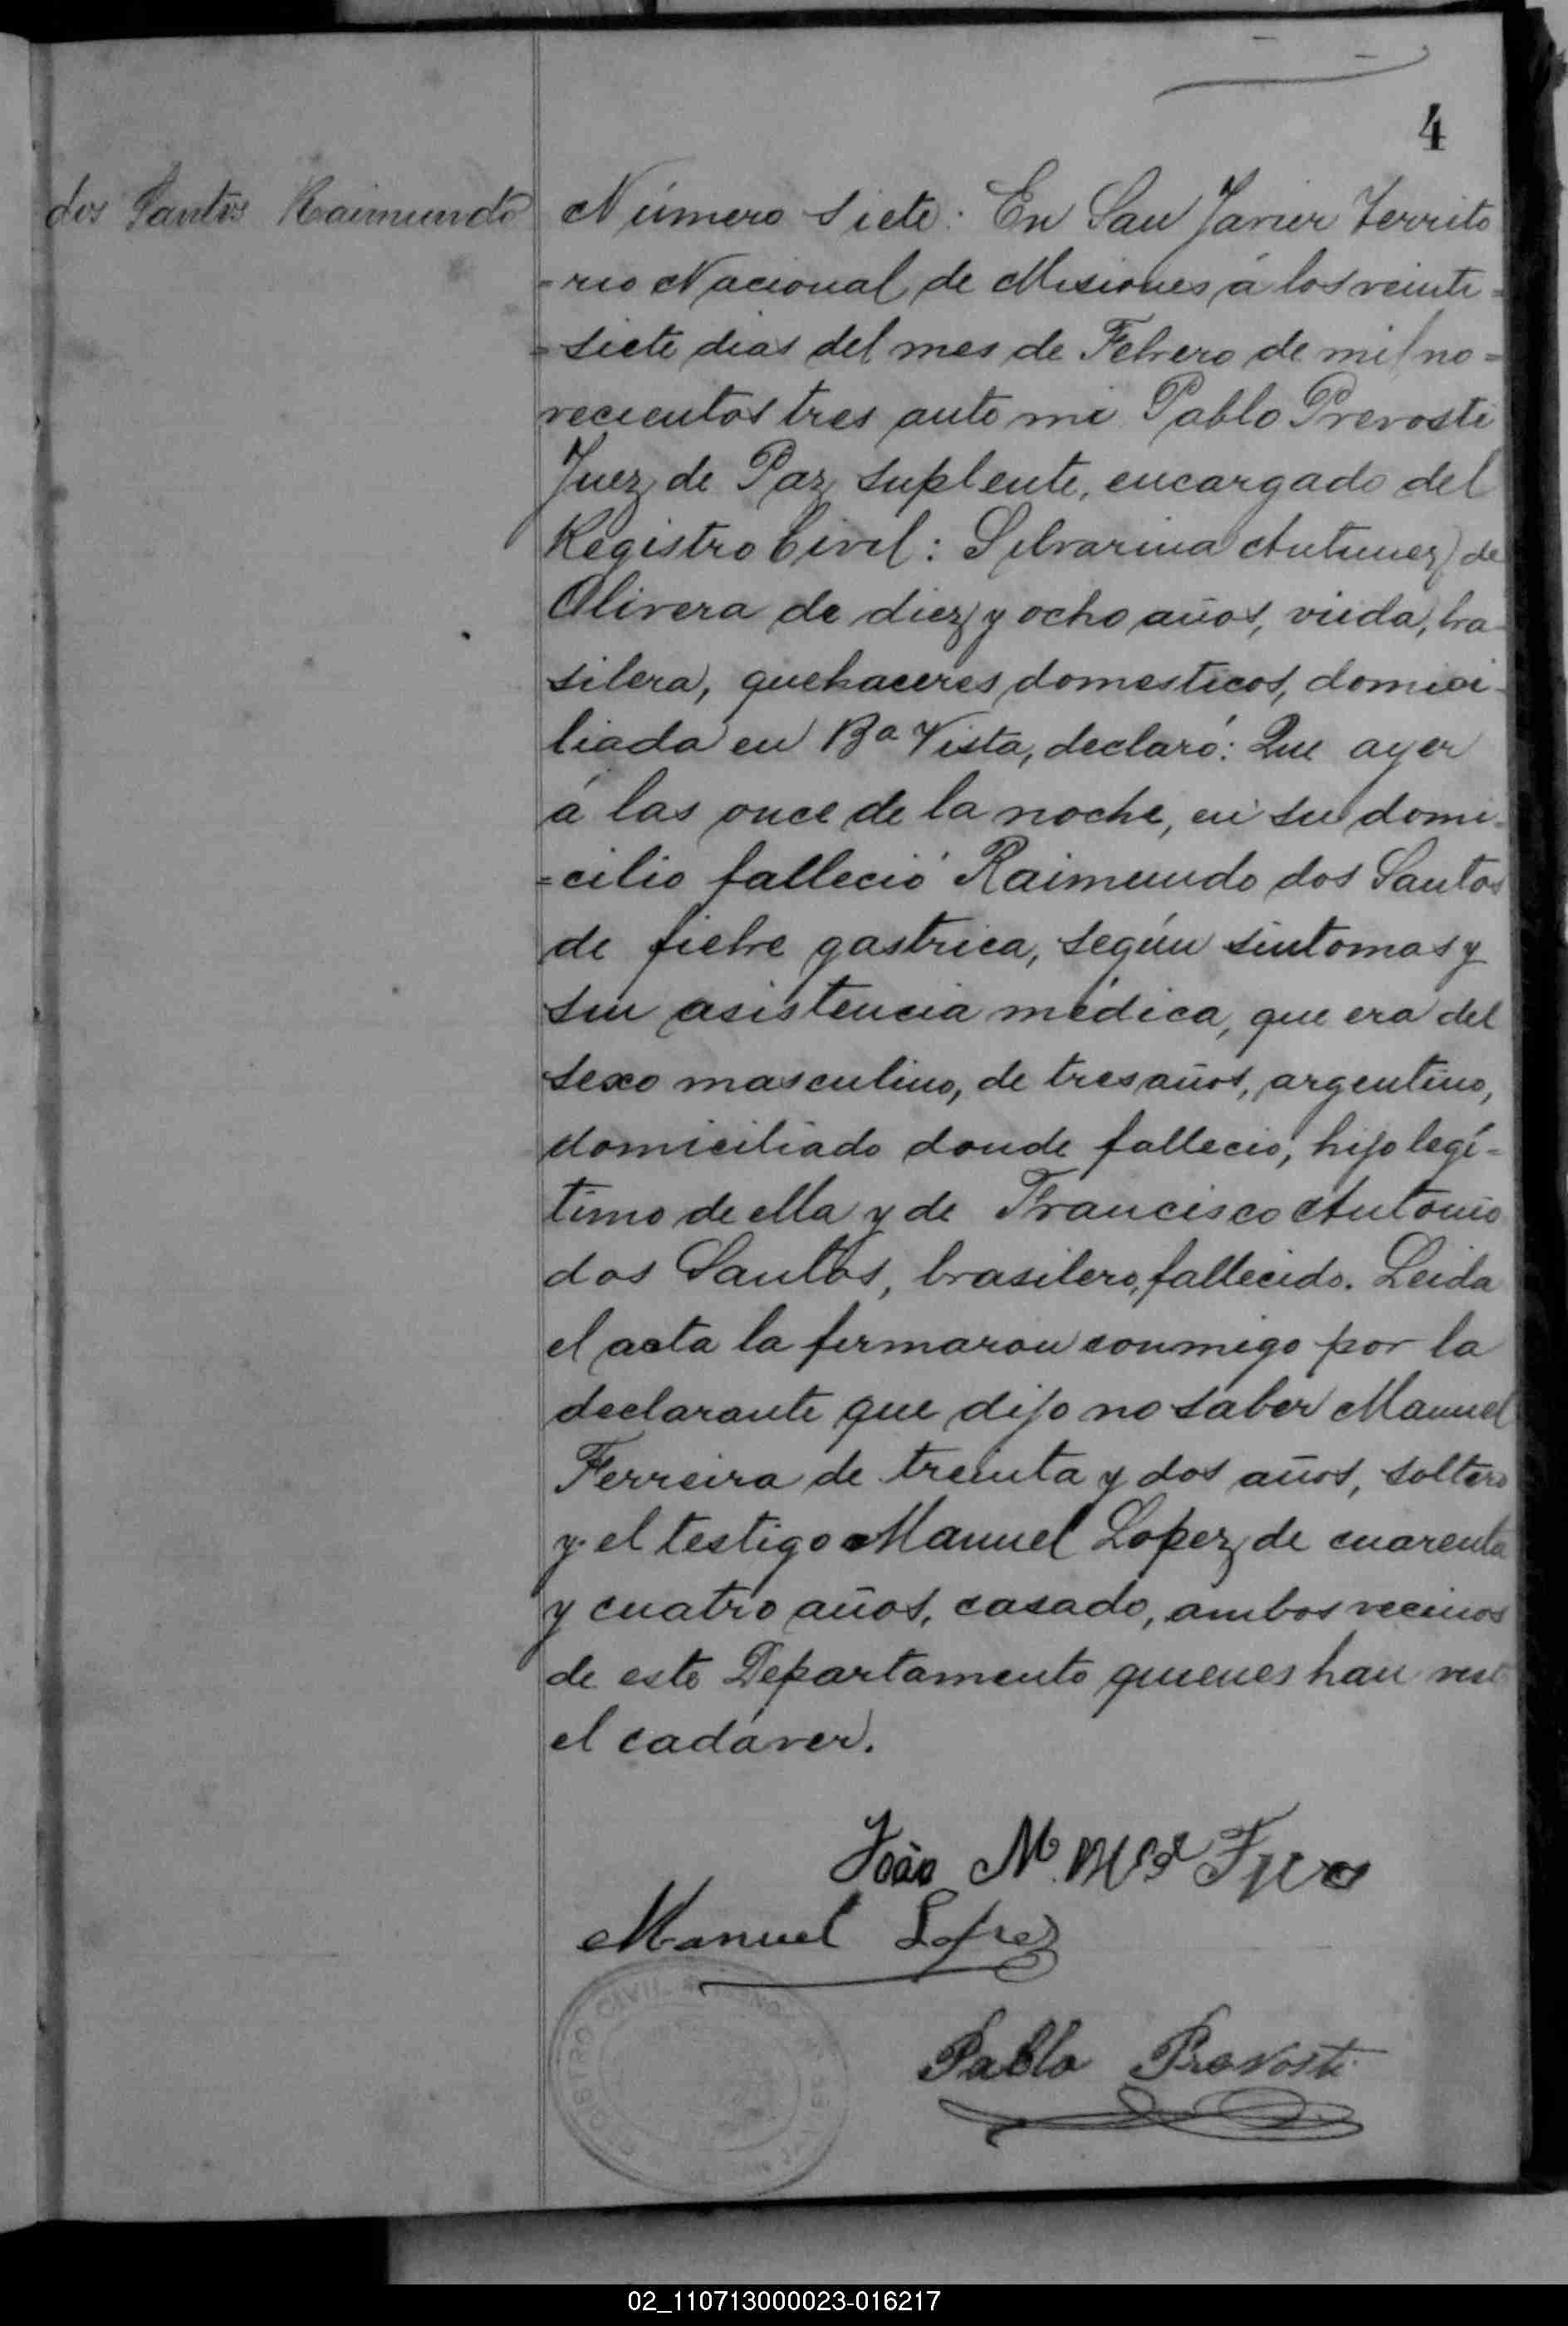 4
dos Santos Raimundo
Número siete: En San Javier Territo
=rio Nacional de Misiones á los veinti=
=siete dias del mes de Febrero de mil no=
vecientos tres ante mi Pablo Prevosti
Juez de Paz suplente, encargado del
Registro Civil: Silvarina Antunez de
Olivera de diez y ocho años, viuda, bra-
silera, quehaceres domesticos, domici-
liada en Bª Vista, declaró: Que ayer
á las once de la noche, en su domi=
=cilio falleció Raimundo dos Santos
de fiebre gastrica, según sintomas y
sin asistencia médica, que era del
sexo masculino, de tres años, argentino,
domiciliado donde falleció, hijo legí=
timo de ella y de Francisco Antonio
dos Santos, brasilero, fallecido. Leida
el acta la firmaron conmigo por la
declarante que dijo no saber Manuel
Ferreira de treinta y dos años, soltero
y el testigo Manuel Lopez de cuarenta
y cuatro años, casado, ambos vecinos
de este Departamento quienes han vist
el cadáver.
João M.
Manuel Lopez
Pablo Prevosti
REGISTRO CIVIL
02_110713000023-016217